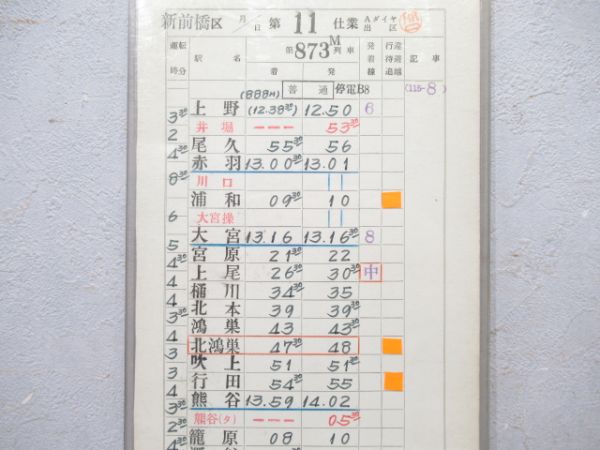 新前橋区 月/日 第 11 仕業 Aダイヤ 出区
運転時分 駅名 第 873M 列車 着 発 発着線 行違待避追越 記事
(888M) 普通 停電B8 (115-8)
上野 (12.38³⁰) 12.50 6
3³⁰
井堀 --- 53³⁰
2
尾久 55³⁰ 56
4³⁰
赤羽 13.00³⁰ 13.01
川口 ||
8³⁰
浦和 09³⁰ 10
大宮操 ||
6
大宮 13.16 13.16³⁰ 8
5
宮原 21³⁰ 22
4³⁰
上尾 26³⁰ 30³⁰ 中
4
桶川 34³⁰ 35
4
北本 39 39³⁰
3³⁰
鴻巣 43 43³⁰
4
北鴻巣 47³⁰ 48
3
吹上 51 51³⁰
3
行田 54³⁰ 55
4
熊谷 13.59 14.02
3³⁰
熊谷(タ) --- 05³⁰
2³⁰
籠原 08 10
4³⁰